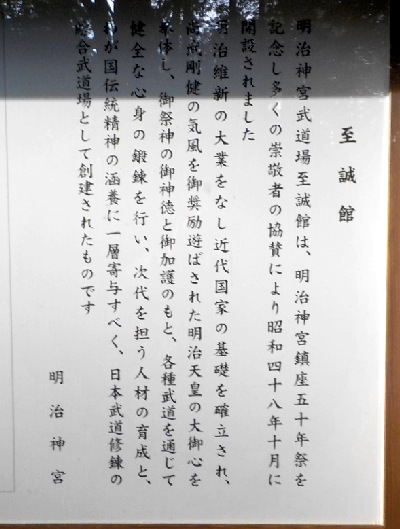 至誠館
明治神宮武道場至誠館は、明治神宮鎮座五十年祭を
記念し多くの崇敬者の協賛により昭和四十八年十月に
開設されました
明治維新の大業をなし近代国家の基礎を確立され、
尚武剛健の気風を御奨励遊ばされた明治天皇の大御心を
奉体し、御祭神の御神徳と御加護のもと、各種武道を通じて
健全な心身の鍛錬を行い、次代を担う人材の育成と、
わが国伝統精神の涵養に一層寄与すべく、日本武道修錬の
総合武道場として創建されたものです
明治神宮